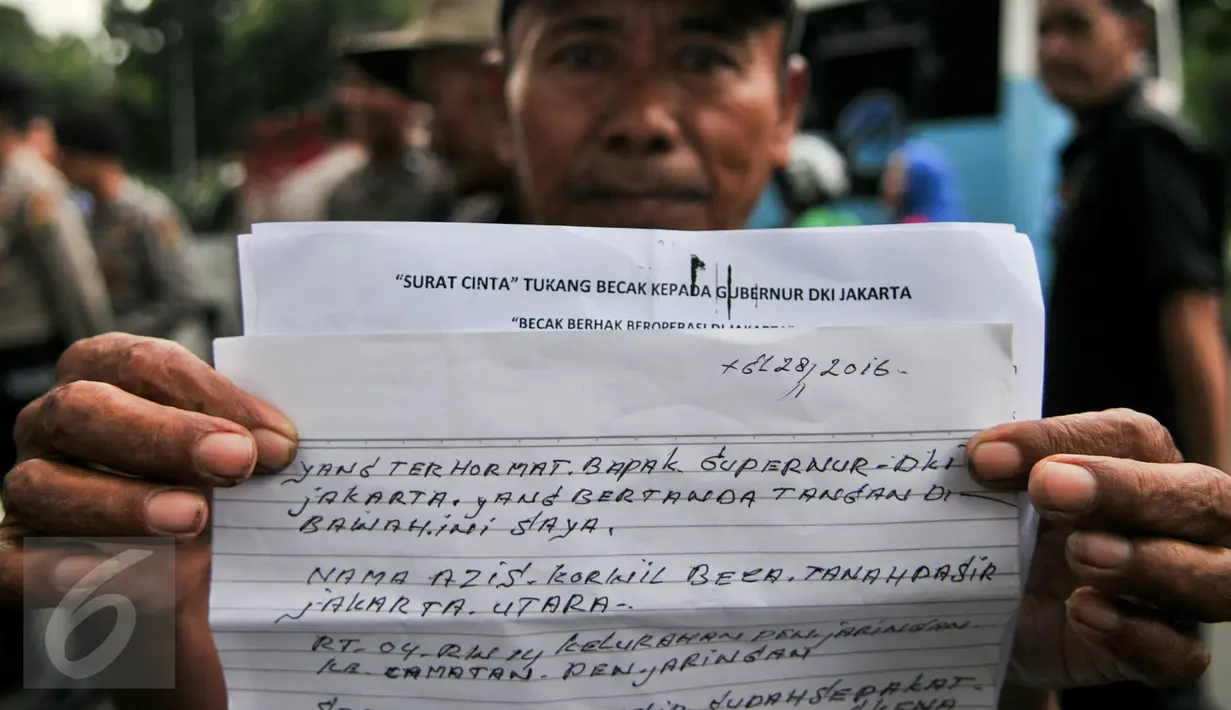 "SURAT CINTA" TUKANG BECAK KEPADA GUBERNUR DKI JAKARTA
"BECAK BERHAK BEROPERASI DI JAKARTA"
28/11 2016-
YANG TERHORMAT. BAPAK GUPERNUR-DKI
JAKARTA. YANG BERTANDA TANGAN DI
BAWAH.INI SAYA.
NAMA AZIS. KORWIL BECA. TANAHPASIR
JAKARTA. UTARA-.
RT. 04. RW 14 KELURAHAN PENJARINGAN
KE. CAMATAN. PENJARINGAN
SUDAH SEPAKAT.
6